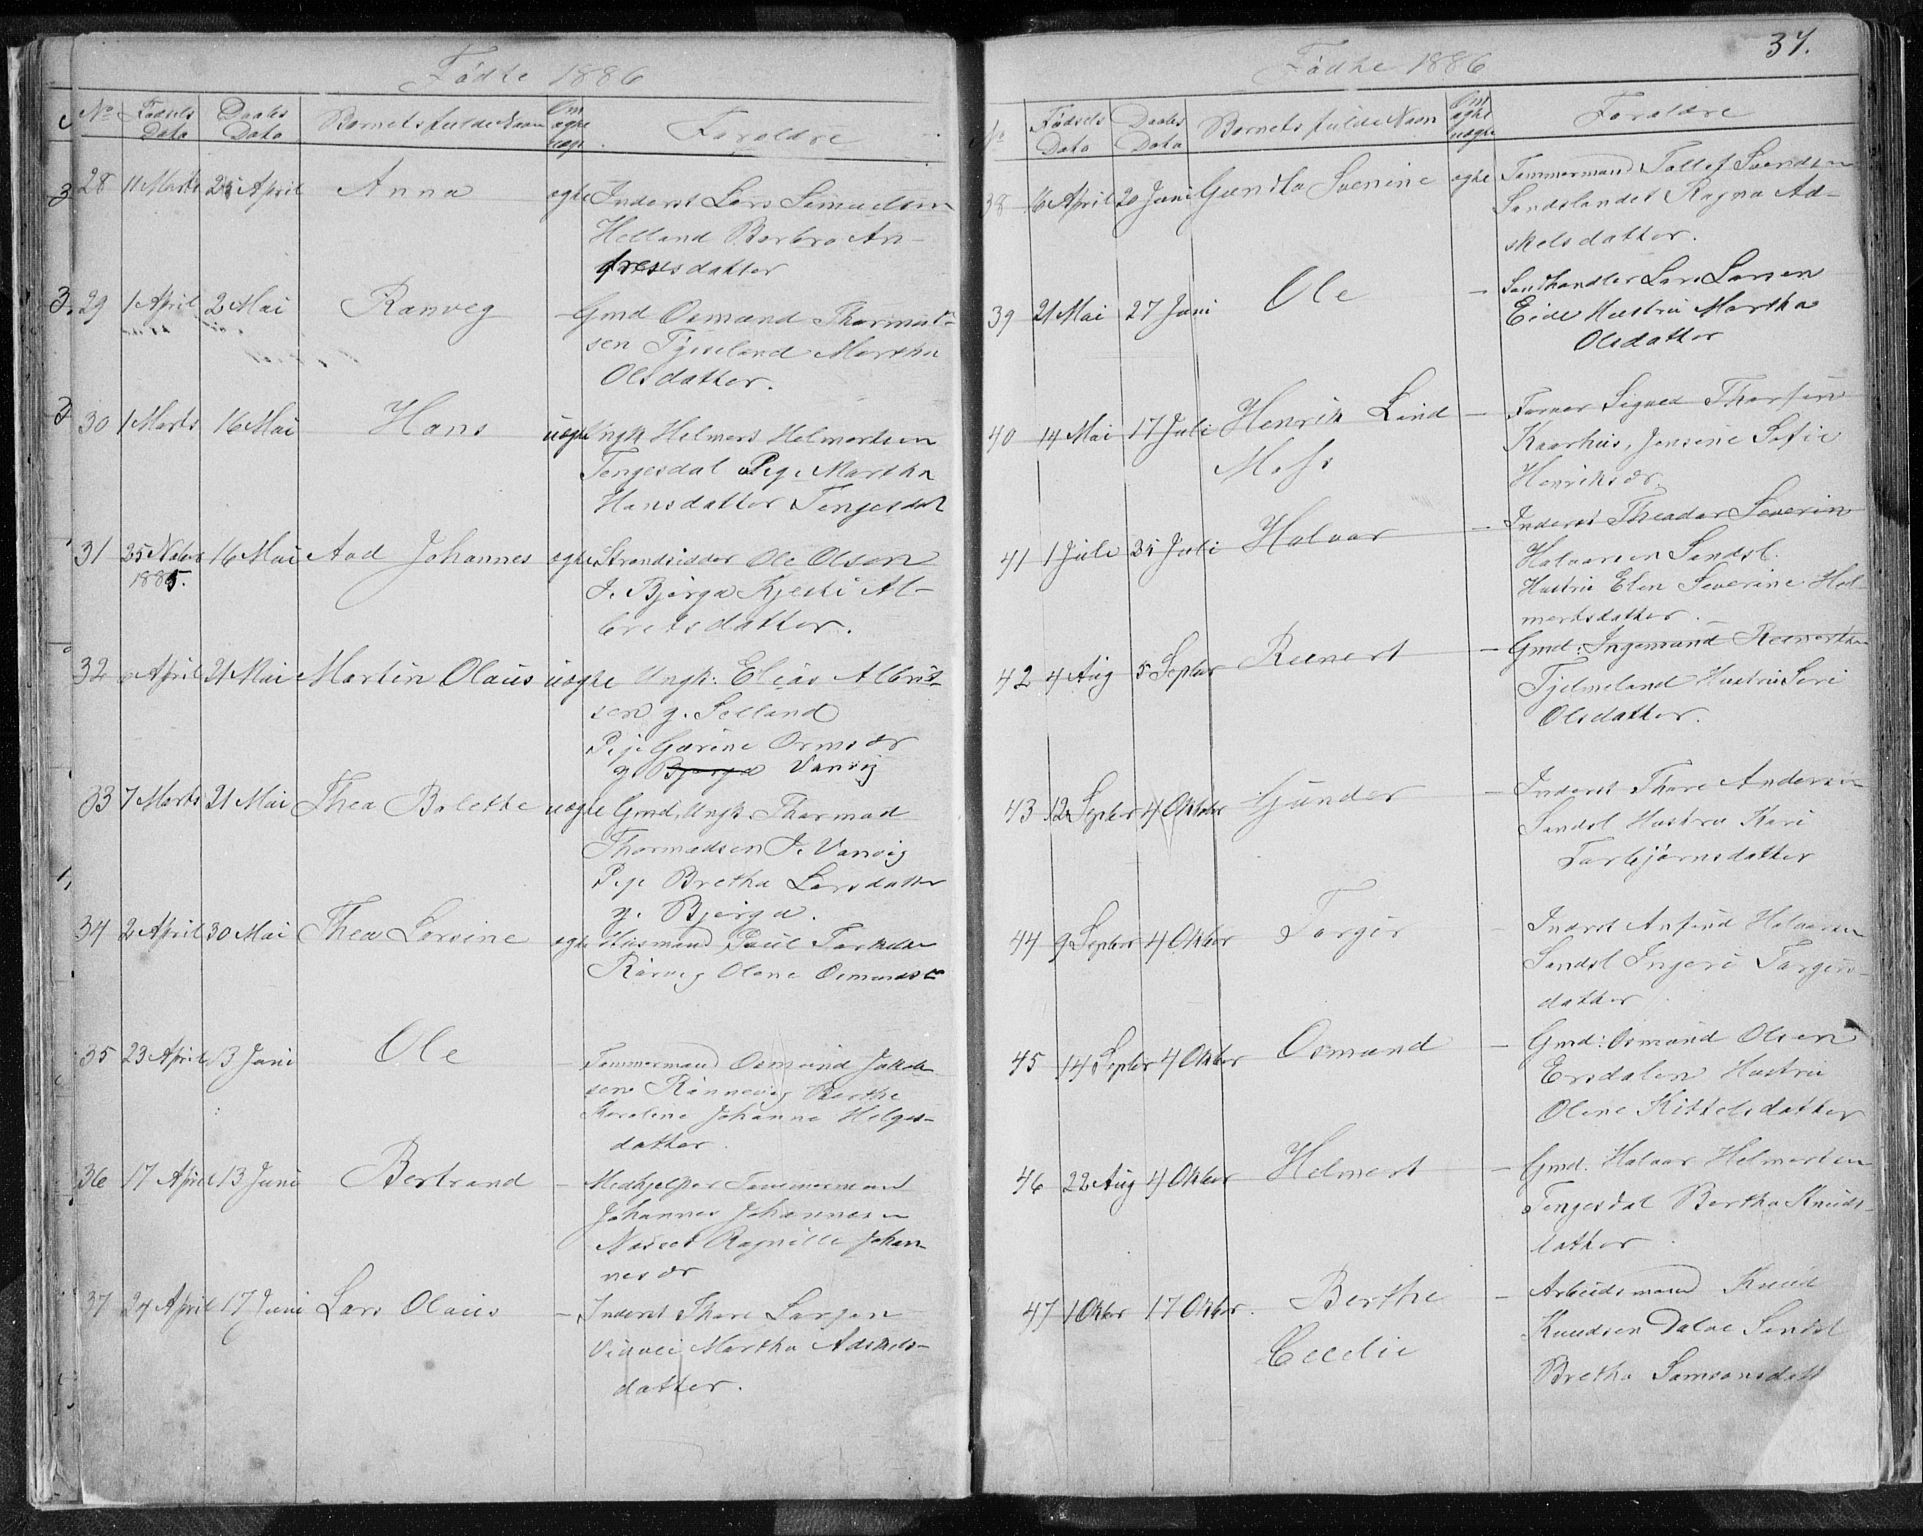 Fødte 1886
No Fødsels Data Daabs Data Barnets fulde Navn Om ægte uæg. Forældre
28 11 Marts 25 April Anna ægte Inderst Lars Simuelsen
Helland Berbro An-
fresdatter
29 1 April 2 Mai Ranveg – Gmd Osmund Thormod-
sen Tjeseland Martha
Olsdatter.
30 1 Marts 16 Mai Hans uægte Ungk Helmert Helmertsen
Tengesdal Pige Martha
Hansdatter Tengesdal
31 25 Novbr 16 Mai Aad Johannes ægte Strandsidder Ole Olsen
1885.
I. Bjerga Kjesti Al-
bretsdatter.
32 April 21 Mai Martin Olaus uægte Ungk: Elias Albrit-
sen y. Selland
Pige Gurine Ormsdr
y. Bjerga Vanvig
33 7 Marts 21 Mai Thea Bolette uægte Gmd, Ungk. Thormod
Thormodsen I. Vanvig
Pige Bretha Larsdatter
y. Bjerga.
34 2 April 30 Mai Thea Lovine ægte Husmand Poul Torkels
Rørvig Olene Osmundsdr
35 23 April 13 Juni Ole – Tømmermand Osmund Jakob-
sen Rønnevig Berthe
Karoline Johanne Helges-
datter.
36 17 April 13 Juni Bertrand – Medhjelper Tømmermand
Johannes Johannesen
Næsset Ragnille Johan
nesdr
37 24 April 17 Juni Lars Olaus – Inderst Thore Larsen
Vinvei Martha Adskels-
datter.
37.
Fødte 1886
No Fødsels Data Daabs Data Barnets fulde Navn Om ægte uægte Forældre
38 16 April 20 Juni Gunda Svenine ægte Tømmermand Tollef Svendsen
Sandslandet Ragna Ad-
skelsdatter.
39 21 Mai 27 Juni Ole – Landhandler Lars Larsen
Eide Hustru Martha
Olsdatter
40 14 Mai 17 Juli Henrik Lind – Farver Sigvald Thorsen
Moss
Kaarhus, Jensine Sofie
Henriksdr.
41 1 Juli 25 Juli Halvor – Inderst Theodor Severin
Halvorsen Sandsl.
Hustru Elen Severine Hel-
mertsdatter.
42 4 Aug 5 Septbr Reinert – Gmd. Ingemund Reinertsen
Tjelmeland Hustru Siri
Olsdatter.
43 12 Septbr 4 Oktober Gunder – Inderst Thore Andersen
Sandsl Hustru Kari
Torbjørnsdatter
44 9 Septbr 4 Oktbr Torger – Inderst Anfind Halvorsen
Sandsl Ingeri Torgers-
datter
45 14 Septbr 4 Oktbr Osmund – Gmd: Osmund Olsen
Ersdalen Hustru
Olene Kittelsdatter
46 22 Aug 4 Oktbr Helmert – Gmd. Halvor Helmertsen
Tengesdal Bertha Knuds-
datter
47 1 Oktbr 17 Oktbr. Berthe – Arbeidsmand Knud
Cecelie
Knudsen Dalve Sandsl
Bretha Samsonsdatt